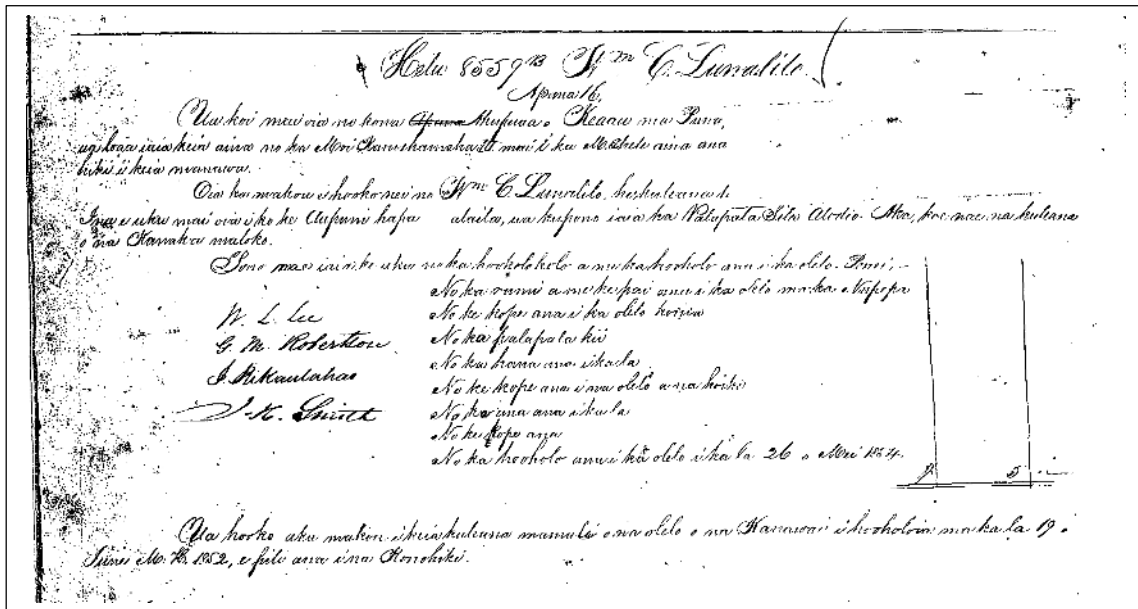 Helu 8559 B Wm C. Lunalilo.
Apana 16.
Ua koi mai oia no kona Apana Ahupuaa o Keaau ma Puna,
ua loaa iaia keia aina no ka Moi Kamehameha III mai i ka Mahele aina ana
hiki i keia manawa.
Oia ka makou e hooko nei no Wm C. Lunalilo, he kuleana
Ina e uku mai oia i ko ke Aupuni hapa alaila, ua kupono iaia ka Palapala Sila Alodio. Aka, koe nae na kuleana
o na Kanaka maloko.
Eono nae iaia ke uku no ka hookolokolo a me ka hooholo ana i ka olelo. Penei,
No ka rumi a me ke pai ana i ka olelo ma ka Nupepa
W. L. Lee No ke kope ana i ka olelo hoike
G. M. Robertson No ka palapala kii
J. Kekaulahao No ka hana ana i ka la
No ke kope ana i na olelo a na hoike
J. H. Smith No ka ana ana i ka la
No ke kope ana
No ka hooholo ana i ka olelo i ka la 26 o Mei 1854.
5
Ua hooko aku makou i keia kuleana mamuli o na olelo o na Kanawai i hooholoia ma ka la 19 o
Iune M. H. 1852, e pili ana i na Konohiki.